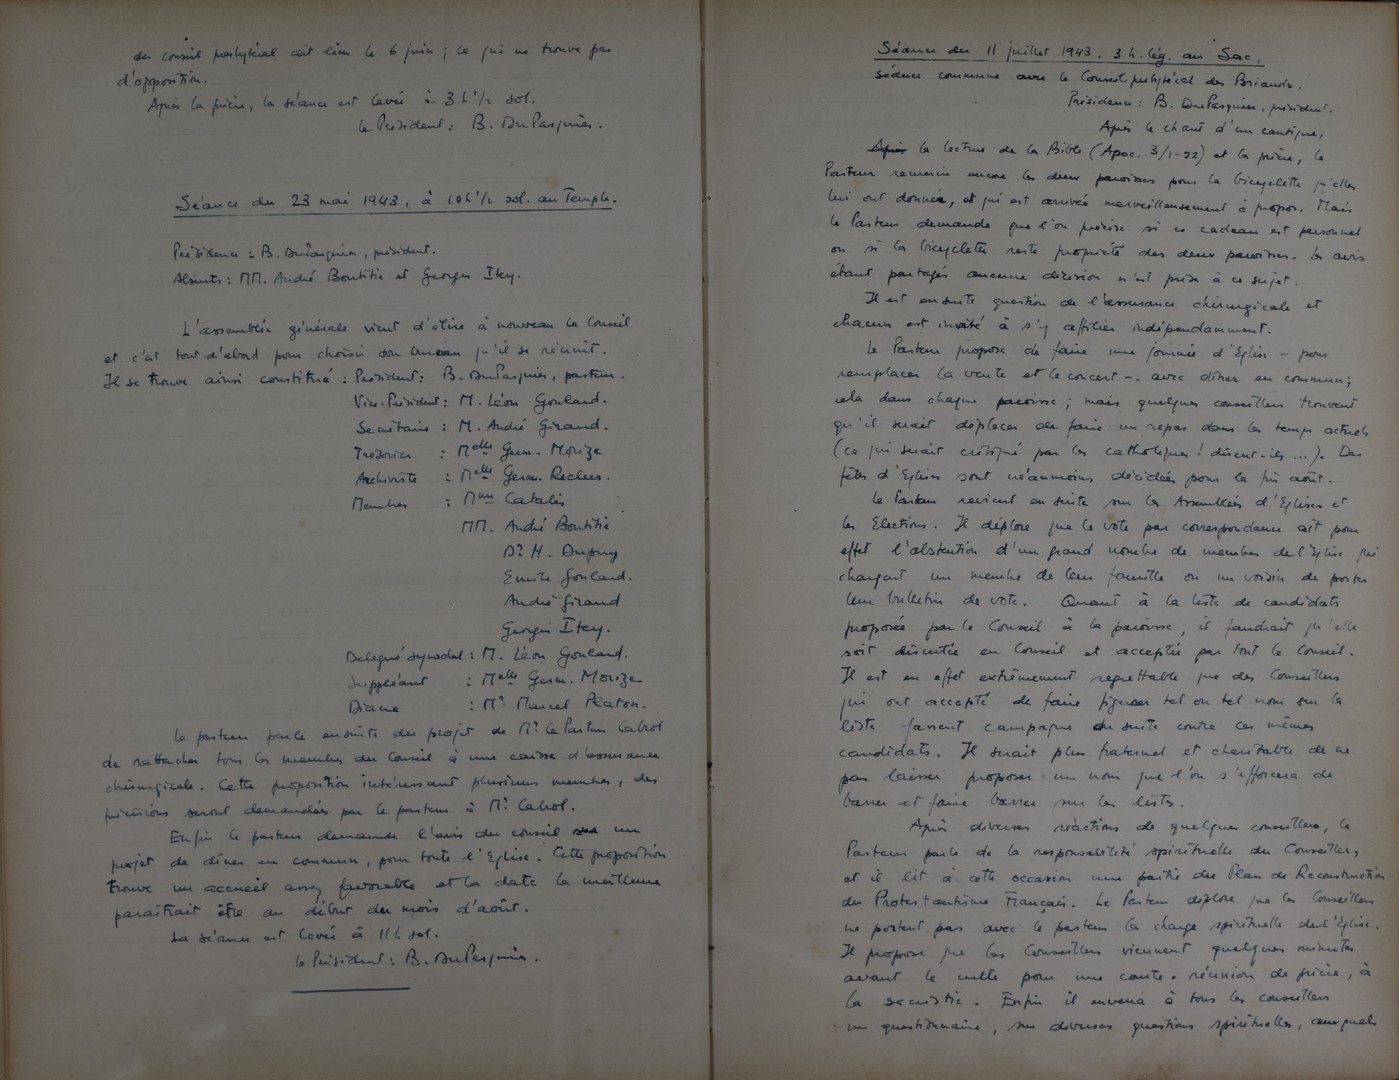 du conseil presbytéral ait lieu le 6 juin ; ce qui ne trouve pas
d'opposition.
Après la prière, la séance est levée à 3 h 1/2 sol.
le Président : B. DuPasquier.
Séance du 23 mai 1943, à 10h 1/2 sol. au Temple.
Présidence : B. DuPasquier, président.
Absents : MM. André Boutitie et Georges Itey.
L'assemblée générale vient d'élire à nouveau le Conseil
et c'est tout d'abord pour choisir son bureau qu'il se réunit.
Il se trouve ainsi constitué : Président : B. DuPasquier, pasteur.
Vice-Président : M. Léon Gouland.
Secrétaire : M. André Giraud.
Trésorier : Melle Germ. Morize
Archiviste : Melle Germ. Reclus.
Membres : Mme Catalis
MM. André Boutitie
Dr H. Dupuy
Emile Gouland.
André Giraud
Georges Itey.
Délégué synodal : M. Léon Gouland.
Suppléant : Melle Germ. Morize
Diacre : Mr Marcel Platon.
Le pasteur parle ensuite du projet de Mr. le Pasteur Cabrol
de rattacher tous les membres du Conseil à une caisse d'assurance
chirurgicale. Cette proposition intéressant plusieurs membres, des
précisions seront demandées par le pasteur à Mr. Cabrol.
Enfin le pasteur demande l'avis du conseil sur un
projet de dîner en commun, pour toute l'Eglise. Cette proposition
trouve un accueil assez favorable et la date la meilleure
paraîtrait être au début du mois d'août.
La séance est levée à 11h sol.
le Président : B. DuPasquier.
Séance du 11 juillet 1943. 3 h. lég. au Sac.
Séance commune avec le Conseil presbytéral des Briands.
Présidence : B. DuPasquier, président.
Après le chant d'un cantique,
Après la lecture de la Bible (Apoc. 3/1-22) et la prière, le
Pasteur remercie encore les deux paroisses pour la bicyclette qu'elles
lui ont donnée, et qui est arrivée merveilleusement à propos. Mais
le Pasteur demande que l'on précise si ce cadeau est personnel
ou si la bicyclette reste propriété des deux paroisses. Les avis
étant partagés aucune décision n'est prise à ce sujet.
Il est ensuite question de l'assurance chirurgicale et
chacun est invité à s'y affilier indépendamment.
Le Pasteur propose de faire une journée d'Eglise - pour
remplacer la vente et le concert -. avec dîner en commun ;
cela dans chaque paroisse ; mais quelques conseillers trouvent
qu'il serait déplacé de faire un repas dans les temps actuels
(ce qui serait critiqué par les catholiques ! disent-ils ...). Des
fêtes d'Eglises sont néanmoins décidées pour la fin août.
Le Pasteur revient ensuite sur les Assemblées d'Eglises et
les Elections. Il déplore que le vote par correspondance ait pour
effet l'abstention d'un grand nombre de membres de l'Eglise qui
chargent un membre de leur famille ou un voisin de porter
leur bulletin de vote. Quant à la liste de candidats
proposée par le Conseil à la paroisse, il faudrait qu'elle
soit discutée en Conseil et acceptée par tout le Conseil.
Il est en effet extrêmement regrettable que des Conseillers
qui ont accepté de faire figurer tel ou tel nom sur la
liste fassent campagne ensuite contre ces mêmes
candidats. Il serait plus fraternel et charitable de ne
pas laisser proposer un nom que l'on s'efforcera de
barrer et faire barrer sur les listes.
Après diverses réactions de quelques conseillers, le
Pasteur parle de la responsabilité spirituelle du Conseiller,
et il lit à cette occasion une partie du Plan de Reconstruction
du Protestantisme Français. Le Pasteur déplore que les Conseillers
ne portent pas avec le pasteur la charge spirituelle de l'Eglise.
Il propose que les Conseillers viennent quelques minutes
avant le culte pour une courte réunion de prière, à
la sacristie. Enfin il enverra à tous les conseillers
un questionnaire, sur diverses questions spirituelles, auxquels